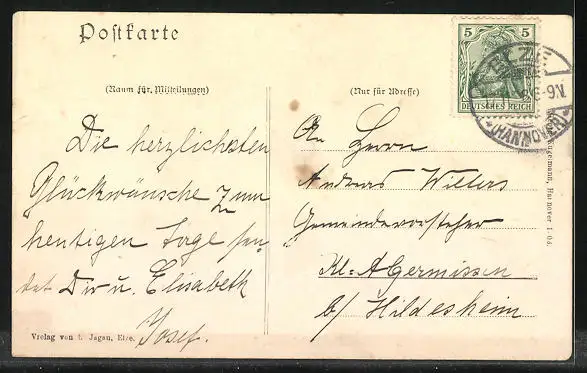 Postkarte
5 5
DEUTSCHES REICH
ELZE
8-9V.
(HANNOVER)
(Raum für Mitteilungen)
(Nur für Adresse)
Die herzlichsten
Glückwünsche zum
heutigen Tage sen-
det Dir u. Elisabeth
Josef.
An Herrn
Andreas Willers
Gemeindevorsteher
Kl. Algermissen
b/ Hildesheim
Verlag von Jagau, Elze.
Engelmann, Hannover I. 08.